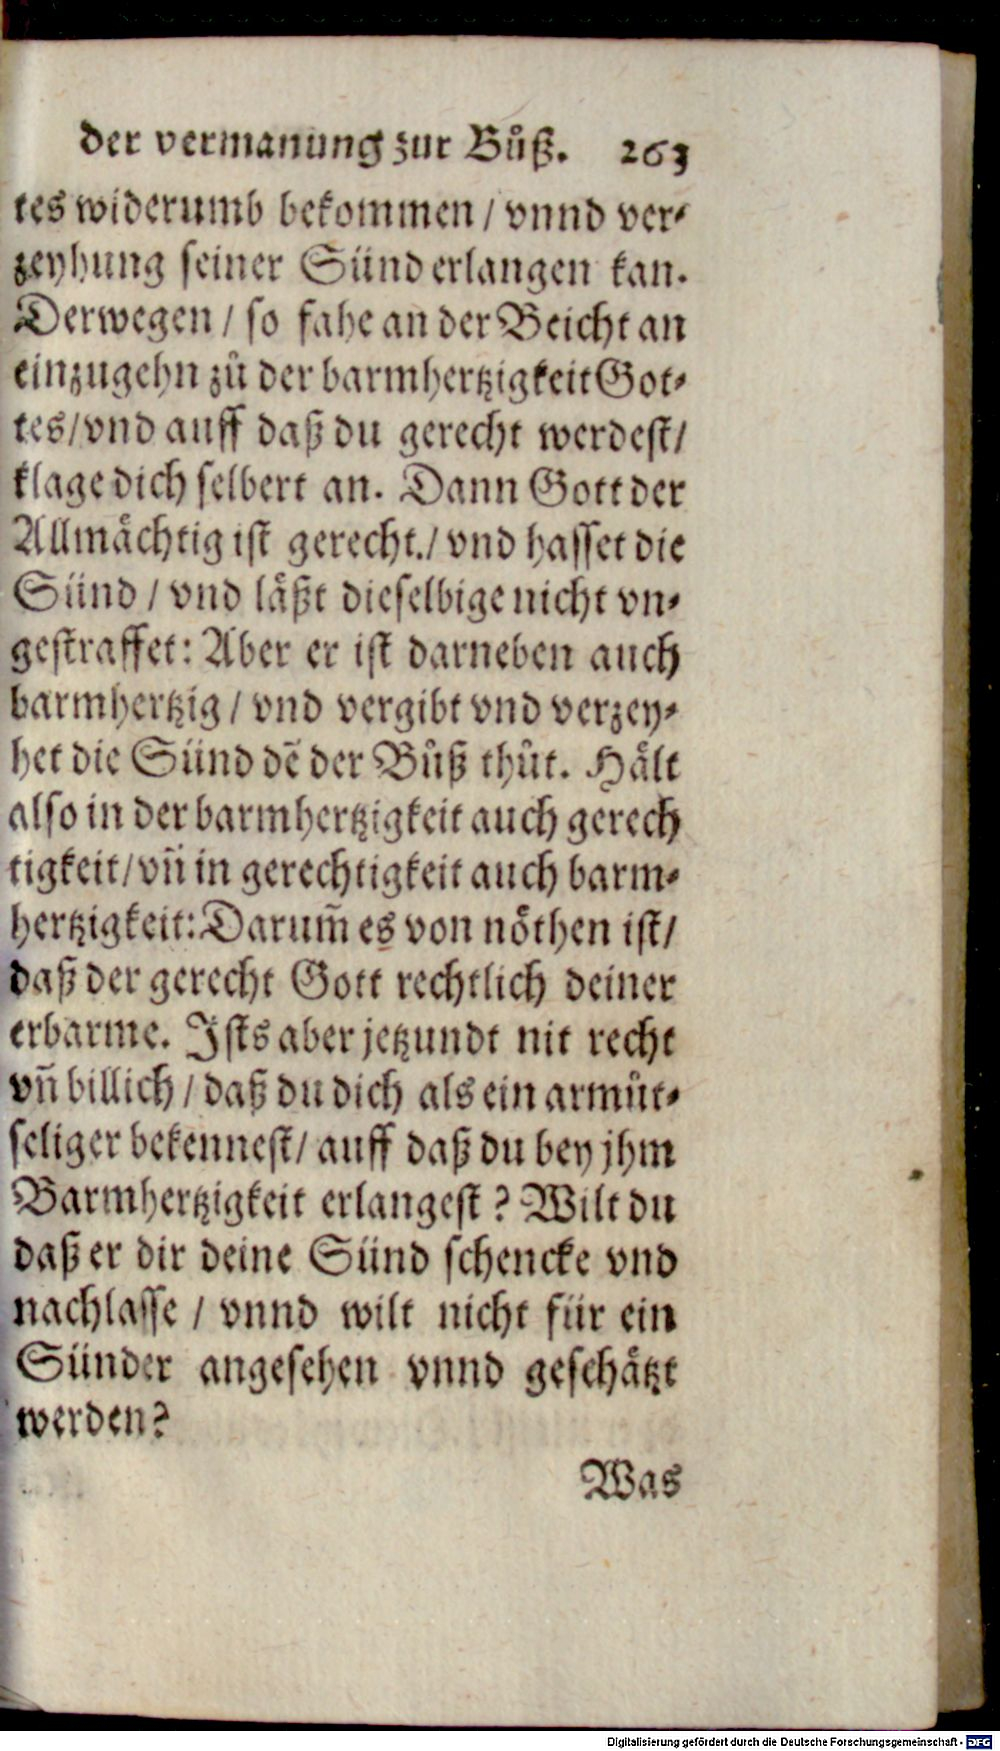 der vermanung zur Bůß. 263
tes widerumb bekommen / vnnd ver-
zeyhung seiner Sünd erlangen kan.
Derwegen / so fahe an der Beicht an
einzugehn zů der barmhertzigkeit Got-
tes / vnd auff daß du gerecht werdest /
klage dich selbert an. Dann Gott der
Allmächtig ist gerecht. / vnd hasset die
Sünd / vnd läßt dieselbige nicht vn-
gestraffet: Aber er ist darneben auch
barmhertzig / vnd vergibt vnd verzey-
het die Sünd dē der Bůß thůt. Hält
also in der barmhertzigkeit auch gerech
tigkeit / vñ in gerechtigkeit auch barm-
hertzigkeit: Darum̃ es von nöthen ist /
daß der gerecht Gott rechtlich deiner
erbarme. Ists aber jetzundt nit recht
vñ billich / daß du dich als ein armůt-
seliger bekennest / auff daß du bey jhm
Barmhertzigkeit erlangest? Wilt du
daß er dir deine Sünd schencke vnd
nachlasse / vnnd wilt nicht für ein
Sünder angesehen vnnd geschätzt
werden?
Was
Digitalisierung gefördert durch die Deutsche Forschungsgemeinschaft - DFG